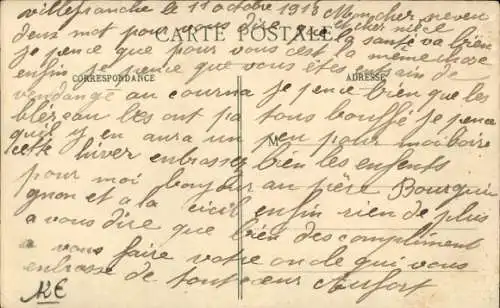 villefranche le 11 octobre 1913 Mon cher neveu
deux mot pour vous dire que chere niece
CARTE POSTALE
la santé va bien
je pence que pour vous c'est la même chose
enfin je pence que vous êtes en train de
CORRESPONDANCE
ADRESSE
vendangé au courna je pence bien que les
bléreau les ont pa tous bouffé je pence
qu'il y en aura un peu pour moi boire
M
cette hiver enbrassez bien les enfents
pour moi bonjour au père Bourgui
gnon et a la enfin rien de plus
a vous dire que bien des compliment
a vous faire votre oncle qui vous
enbrasse de tout cœur